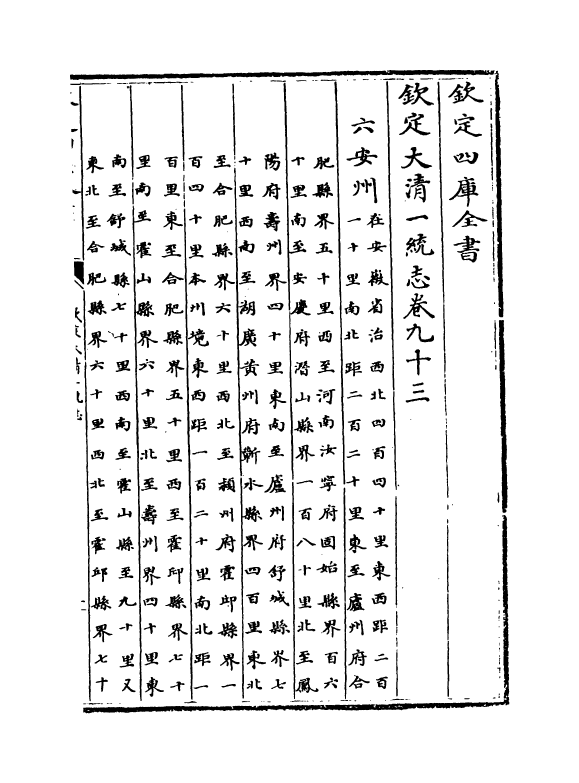 欽定四庫全書
欽定大清一統志卷九十三
六安州
在安徽省治西北四百四十里東西距二百
一十里南北距二百二十里東至廬州府合
肥縣界五十里西至河南汝寧府固始縣界百六
十里南至安慶府潛山縣界一百八十里北至鳳
陽府壽州界四十里東南至廬州府舒城縣界七
十里西南至胡廣黄州府蘄水縣界四百里東北
至合肥縣界六十里西北至潁州府霍邱縣界一
百四十里本州境東西距一百二十里南北距一
百里東至合肥縣界五十里西至霍邱縣界七十
里南至霍山縣界六十里北至壽州界四十里東
南至舒城縣七十里西南至霍山縣至九十里又
東北至合肥縣界六十里西北至霍邱縣界七十